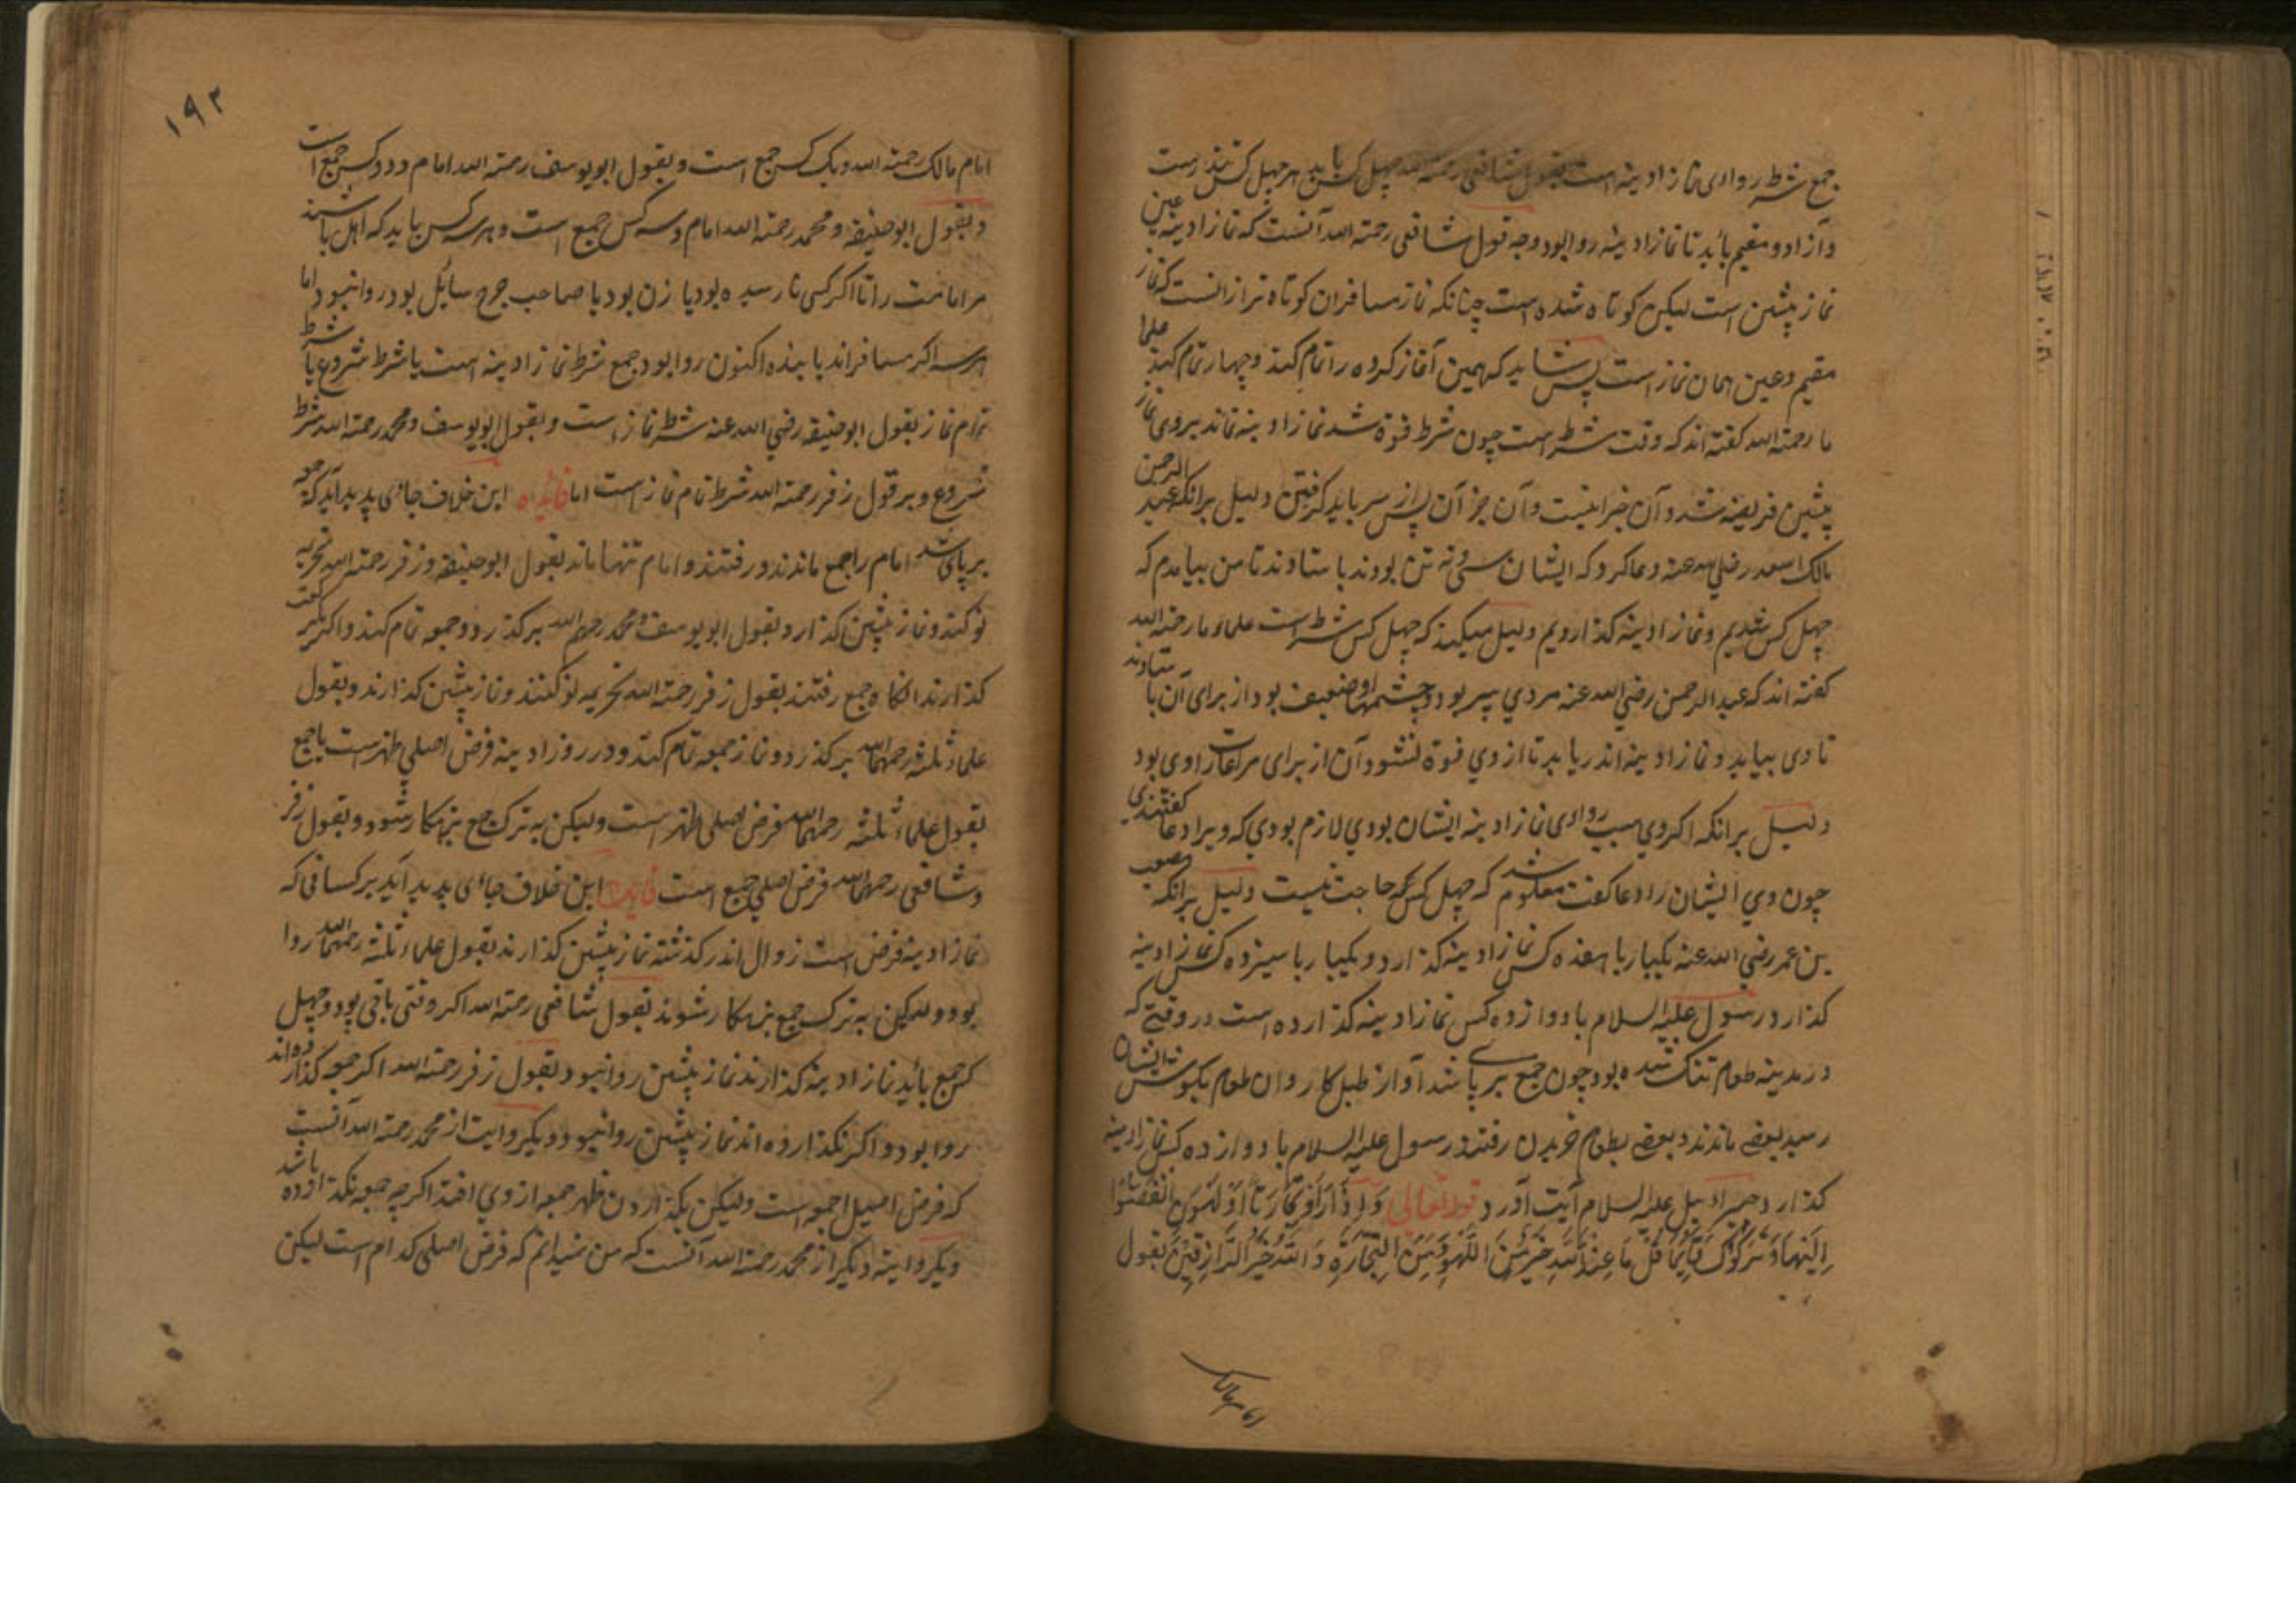 جمع شرط روای نماز ادینه است بقول شافعی رحمة الله چهل کس باید هر چهل کس تندرست
و آزاد و مقیم باید تا نماز ادینه روا بود وجه قول شافعی رحمة الله آنست که نماز ادینه عین
نماز پیشین است لیکن کوتاه شده است چنانکه نماز مسافران کوتاه تر از انست که نماز
مقیم و عین همان نماز است پس شاید که همین آغاز کرده را تمام کند و چهار تمام کند علما
ما رحمة الله کفته اند که وقت شرط است چون شرط فوة شد نماز ادینه نماند بروی نماز
پیشین فریضه شد و آن جز اینست و آن جز آن پس از سر باید کرفتن دلیل برانکه عبد الرحمن
مالک اسعد رضی الله عنه دعا کرد که ایشان سی و نه تن بودند باستاوند تا من بیامدم که
چهل کس شدیم و نماز ادینه کذاردیم دلیل میکند که چهل کس شرط است علماء ما رحمة الله
کفته اند که عبد الرحمن رضی الله عنه مردی پیر بود و چشمهاء او ضعیف بود از برای آن باستاوند
تا وی بیاید و نماز ادینه اندریابد تا از وی فوة نشود آن از برای مراعات را وی بود
دلیل برانکه اکر وی سبب روای نماز ادینه ایشان بودی لازم بودی که ویرا دعا کفتندی
چون وی ایشان را دعا کفت معلوم شد که چهل کس کم حاجت نیست دلیل برانکه مصعب
بن عمر رضی الله عنه یکبار با هفده کس نماز ادینه کذارد و یکبار با سیزده کس نماز ادینه
کذارد رسول علیه السلام با دوازده کس نماز ادینه کذارده است در وقتے که
در مدینه طعام تنک شده بود چون جمع بر پا شد آواز طبل کاروان طعام بکوش ایشان
رسید بعضے ماندند و بعضے بطعام خریدن رفتند رسول علیه السلام با دوازده کس نماز ادینه
کذارد جبرادیل علیه السلام آیت آورد قوله تعالی وَاِذَا رَاَوْ تِجَارَتًا اَوْ لَهْوَنِ انْفَضُّوا
اِلَیْهَا وَتَرَکُوْکَ قَایِمًا قُلْ مَا عِنْدَ اللّٰهِ خَیْرٌ مِّنَ اللَّهْوِ وَمِنَ التِّجَارَةِ وَاللّٰهُ خَیْرُ الرَّازِقِیْنَ بقول
امام مالک
١٩٢
امام مالک رحمة الله و یک کس جمع است و بقول ابو یوسف رحمة الله امام و دو کس جمع است
و بقول ابو حنیفه و محمد رحمة الله امام و سه کس جمع است و هر سه کس باید که اهل باشند
مر امامت را تا اکر کسی نارسیده بود یا زن بود یا صاحب جرح سایل بود روا نبود اما
هر سه اکر مسافراند یا بنده اکنون روا بود جمع شرط نماز ادینه است یا شرط شروع یا شرط
تمام نماز بقول ابو حنیفه رضی الله عنه شرط نماز است و بقول ابو یوسف و محمد رحمة الله شرط
شروع و بر قول زفر رحمة الله شرط تمام نماز است اما فائده این خلاف جائی پدید آید که جمعه
بر پای شد امام را جمع ماندند و رفتند و امام تنها ماند بقول ابو حنیفه و زفر رحمة الله تحریمه
نو کند و نماز پیشین کذارد و بقول ابو یوسف و محمد رحمهم الله برکذرد و جمعه تمام کند و اکر یک رکعت
کذارند انکاه جمع رفتند بقول زفر رحمة الله تحریمه نو کنند و نماز پیشین کذارند و بقول
علماء ثلثه رحمهما الله برکذرد و نماز جمعه تمام کند و در روز ادینه فرض اصلی ظهر است یا جمع
بقول علماء ثلثه رحمهما الله فرض اصلی ظهر است ولیکن به ترک جمع بزهکار شود و بقول زفر
و شافعی رحمهما الله فرض اصلی جمع است فایده این خلاف جائی پدید آید بر کسانی که
نماز ادینه فرض است زوال اندر کذشته نماز پیشین کذارند بقول علماء ثلثه رحمهما الله روا
بود و لیکن به ترک جمع بزهکار شوند بقول شافعی رحمة الله اکر وقتی باقی بود و چهل
کس جمع باید نماز ادینه کذارند نماز پیشین روا نبود و بقول زفر رحمة الله اکر جمعه کذارده اند
روا بود و اکر نکذارده اند نماز پیشین روا نبود و دیکر روایت از محمد رحمة الله آنست
که فرض اصیل جمعه است ولیکن بکذاردن ظهر جمعه از وی افتد اکر چه جمعه نکذارده باشد
دیکر روایته دیکر از محمد رحمة الله آنست که من ندانم که فرض اصلی کدام است لیکن